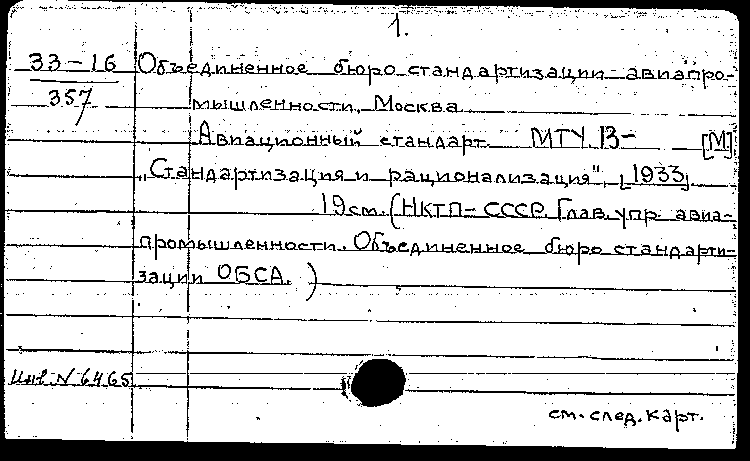 1.
33-16
357
Объединенное бюро стандартизации авиапро-
мышленности, Москва.
Авиационный стандарт. МТУ 13- [М]
„Стандартизация и рационализация", [1933].
19см. (НКТП-СССР. Глав. упр. авиа-
промышленности. Объединенное бюро стандарти-
зации ОБСА.)
Инв N 6465
см. след. карт.